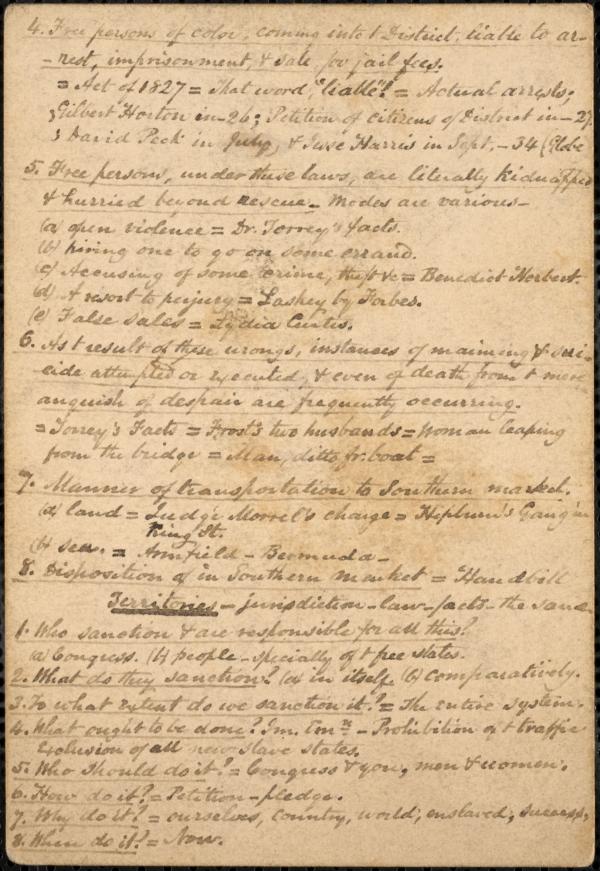 4. Free persons of color, coming into t District, liable to ar-
-rest, imprisonment, & sale for jail fees.
= Act of 1827 = That word, "liable"! = Actual arrests;
; Gilbert Horton in -26; Petition of citizens of District in -27
; David Peck in July, & Jesse Harris in Sept. -34 (Globe
5. Free persons, under these laws, are literally kidnapped
& hurried beyond rescue - Modes are various -
(a) open violence = Dr. Torrey's facts.
(b) hiring one to go on some errand.
(c) Accusing of some crime, theft &c = Benedict Norbert.
(d) A resort to perjury = Laskey by Forbes.
(e) False sales = Lydia Curtis.
6. As t result of these wrongs, instances of maiming & sui-
cide attempted or executed, & even of death from t mere
anguish of despair are frequently occurring.
= Torrey's Facts = Frost's two husbands = Woman leaping
from the bridge = Man, ditto fr. boat =
7. Manner of transportation to Southern market.
(a) land = Judge Morrel's charge = Hepburn's Gang in
King St.
(b) sea. = Armfield - Bermuda -
8. Disposition of in Southern market = Handbill
Territories - jurisdiction - law - facts - the same
1. Who sanction & are responsible for all this?
(a) Congress. (b) people - specially of t free states.
2. What do they sanction? (a) in itself (b) comparatively.
3. To what extent do we sanction it? = The entire system.
4. What ought to be done? Im. Emn - Prohibition of t traffic
Exclusion of all new slave states.
5. Who should do it? = Congress & you, men & women.
6. How do it? = Petition - pledge.
7. Why do it? = ourselves, country, world, enslaved, success,
8. When do it? = Now.